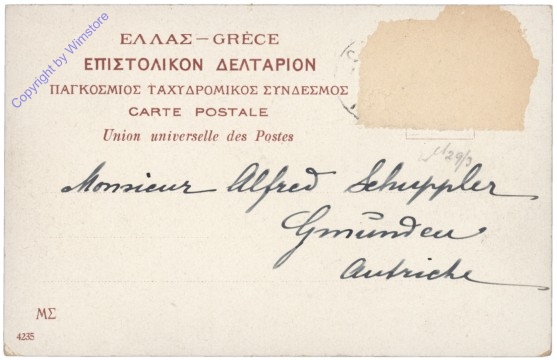 ΕΛΛΑΣ — GRÈCE
ΕΠΙΣΤΟΛΙΚΟΝ ΔΕΛΤΑΡΙΟΝ
ΠΑΓΚΟΣΜΙΟΣ ΤΑΧΥΔΡΟΜΙΚΟΣ ΣΥΝΔΕΣΜΟΣ
CARTE POSTALE
Union universelle des Postes
Monsieur Alfred Schuppler
Gmunden
Autriche
ΜΣ
4235
Copyright by Wimstore